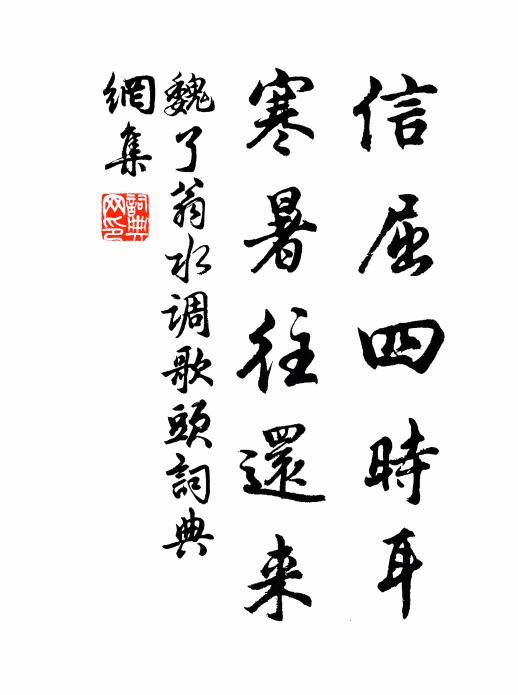 信屈四時耳
寒暑往還来
魏了翁水调歌頭詞典
網集
詞典网印